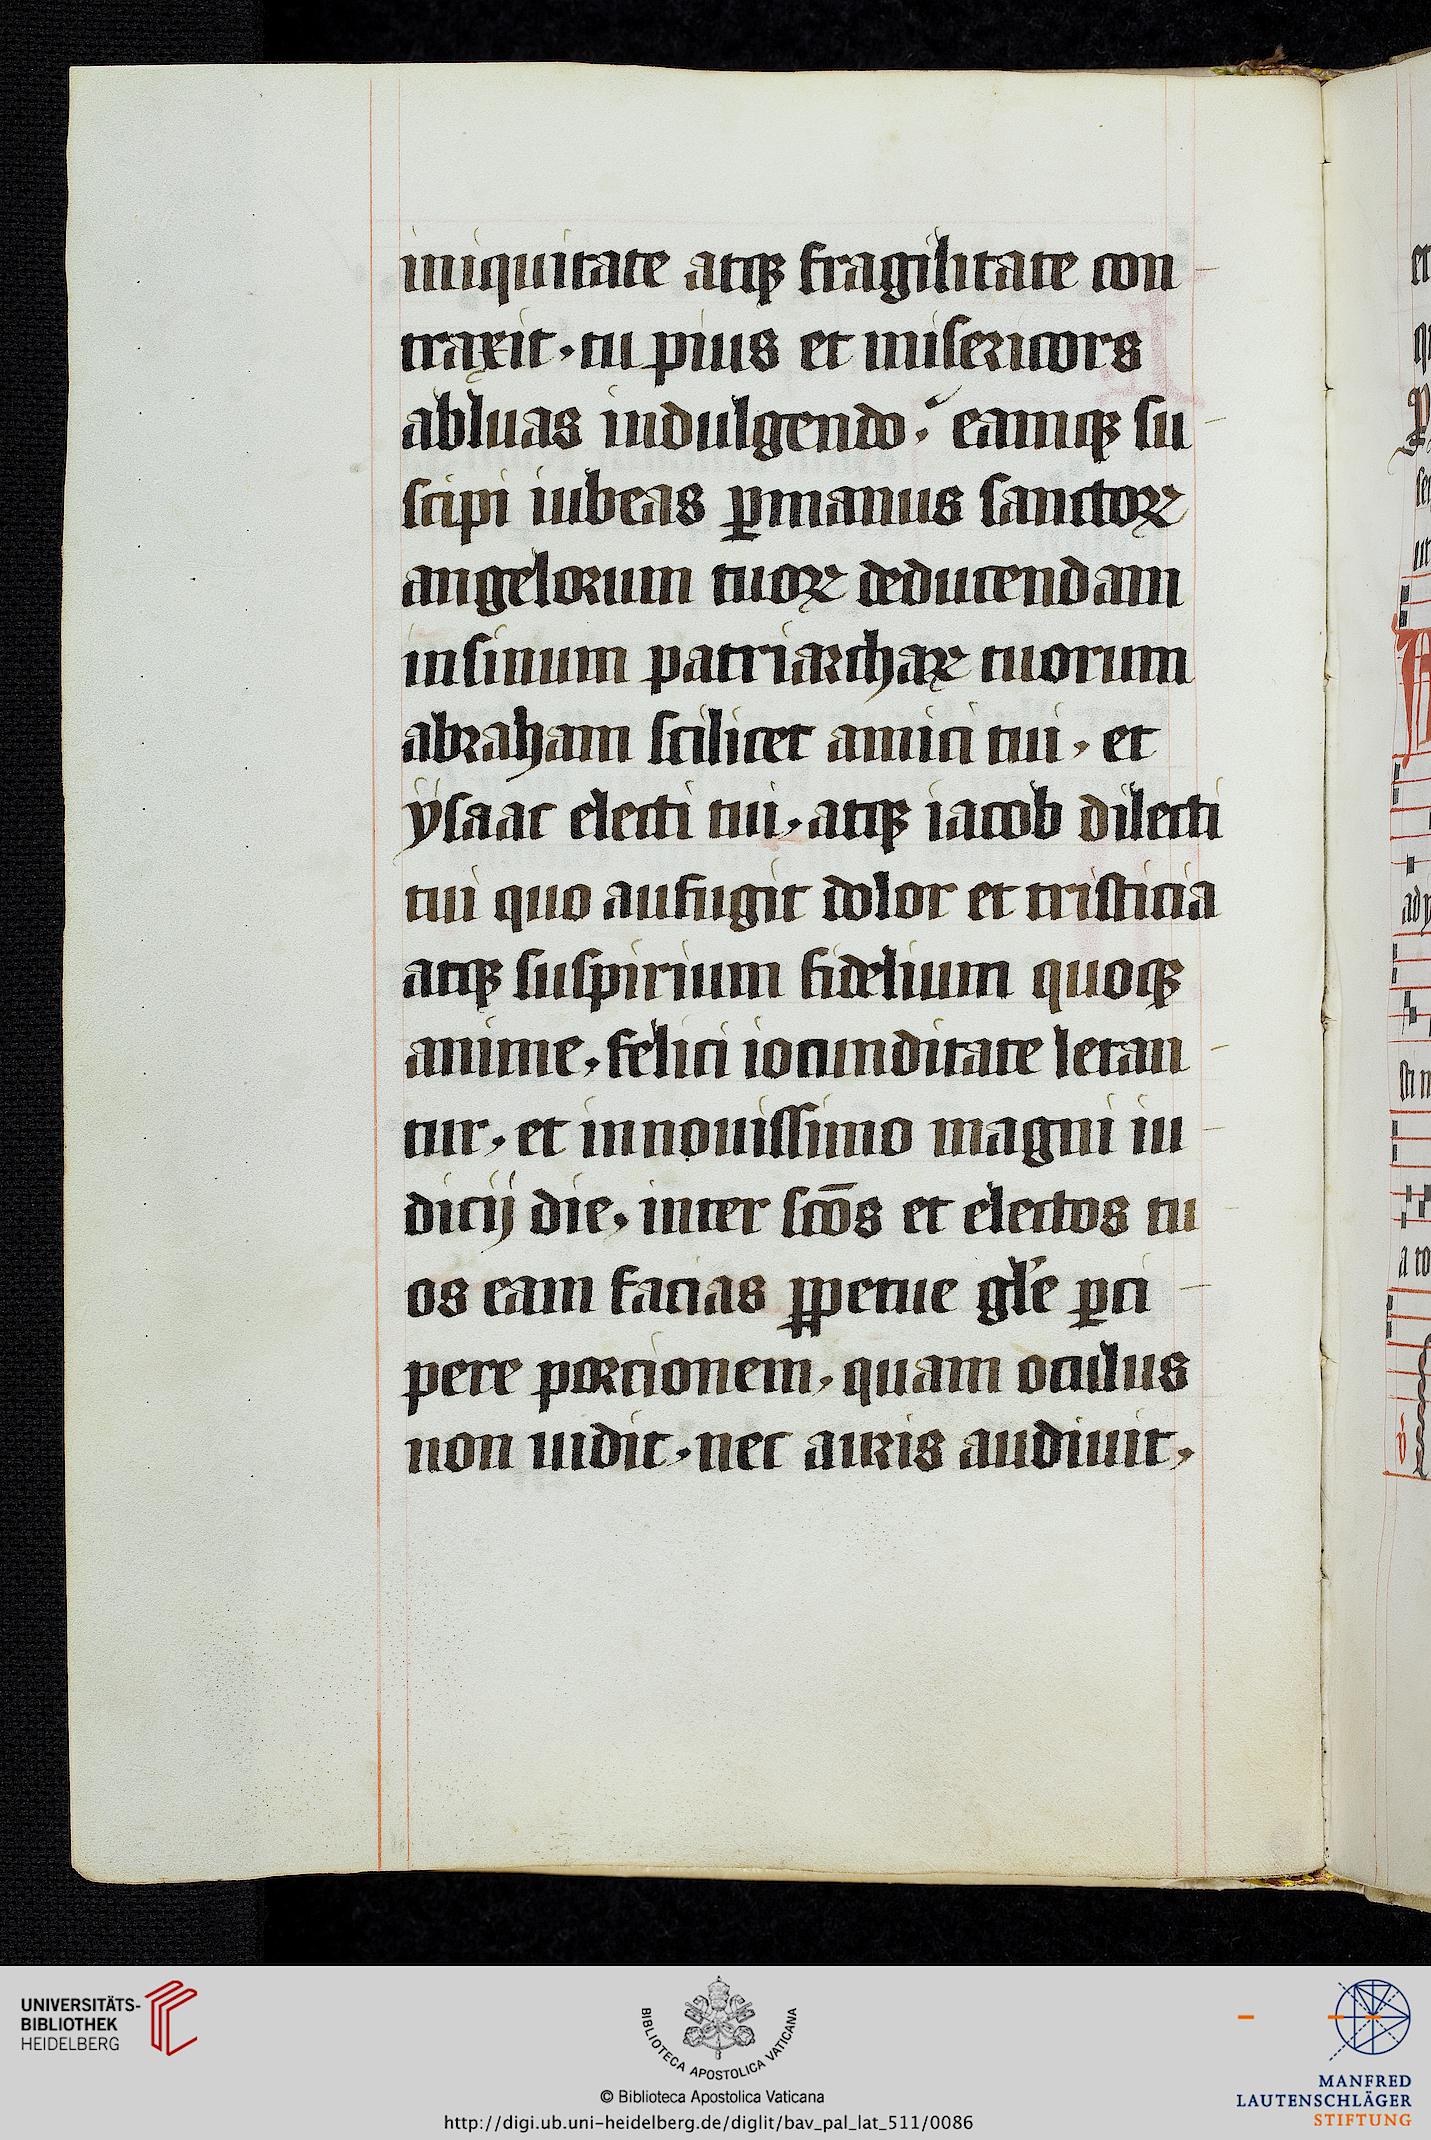 iniquitate atqꝫ fragilitate con
traxit · tu pius et misericors
abluas indulgendo · eamqꝫ su
scipi iubeas ꝑmanus sanctoꝝ
angelorum tuoꝝ deducendam
insinum patriarchaꝝ tuorum
abraham scilicet amici tui · et
ẏsaac electi tui · atqꝫ iacob dilecti
tui quo aufugit dolor et tristicia
atqꝫ suspirium fidelium quoqꝫ
anime · felici iocunditate letan
tur · et innouissimo magni iu
dicij die · inter scōs et electos tu
os eam facias ꝑpetue gl̄e ꝑci
pere porcionem · quam oculus
non uidit · nec auris audiuit ·
UNIVERSITÄTS-
BIBLIOTHEK
HEIDELBERG
BIBLIOTECA APOSTOLICA VATICANA
© Biblioteca Apostolica Vaticana
http://digi.ub.uni-heidelberg.de/diglit/bav_pal_lat_511/0086
MANFRED
LAUTENSCHLÄGER
STIFTUNG